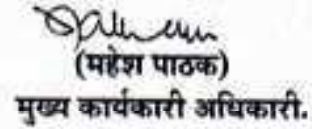 (महेश पाठक)
मुख्य कार्यकारी अधिकारी.